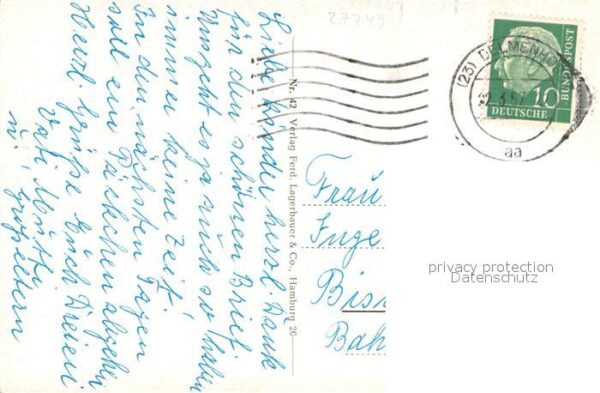 27749
Liebe Kinder herzl. Dank
für den schönen Brief.
Uns geht es ja auch so haben
immer keine Zeit.
In den nächsten Tagen
soll ein Päckchen abgehen
Herzl. Grüße Euch Dreien
Vati Mutti
u. Großeltern
Nr. 42 Verlag Ferd. Lagerbauer & Co., Hamburg 26
(23) DELMENHO
3.57
aa
10
DEUTSCHE
BUNDESPOST
Frau
Inge
Bis
Bah
privacy protection
Datenschutz